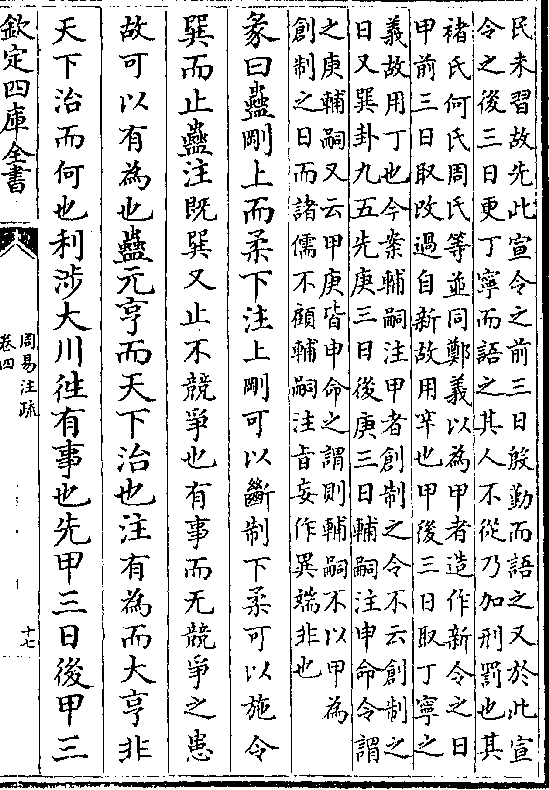 民未習故先此宣令之前三日殷勤而語之又於此宣
令之後三日更丁寧而語之其人不從乃加刑罰也其
褚氏何氏周氏等並同鄭義以為甲者造作新令之日
甲前三日取改過自新故用辛也甲後三日取丁寧之
義故用丁也今案輔嗣注甲者創制之令不云創制之
日又巽卦九五先庚三日後庚三日輔嗣注申命令謂
之庚輔嗣又云甲庚皆申命之謂則輔嗣不以甲為
創制之日而諸儒不顧輔嗣注旨妄作異端非也
彖曰蠱剛上而柔下注上剛可以斷制下柔可以施令
巽而止蠱注既巽又止不競爭也有事而无競爭之患
故可以有為也蠱元亨而天下治也注有為而大亨非
天下治而何也利涉大川往有事也先甲三日後甲三
欽定四庫全書
周易注疏
卷四
十七